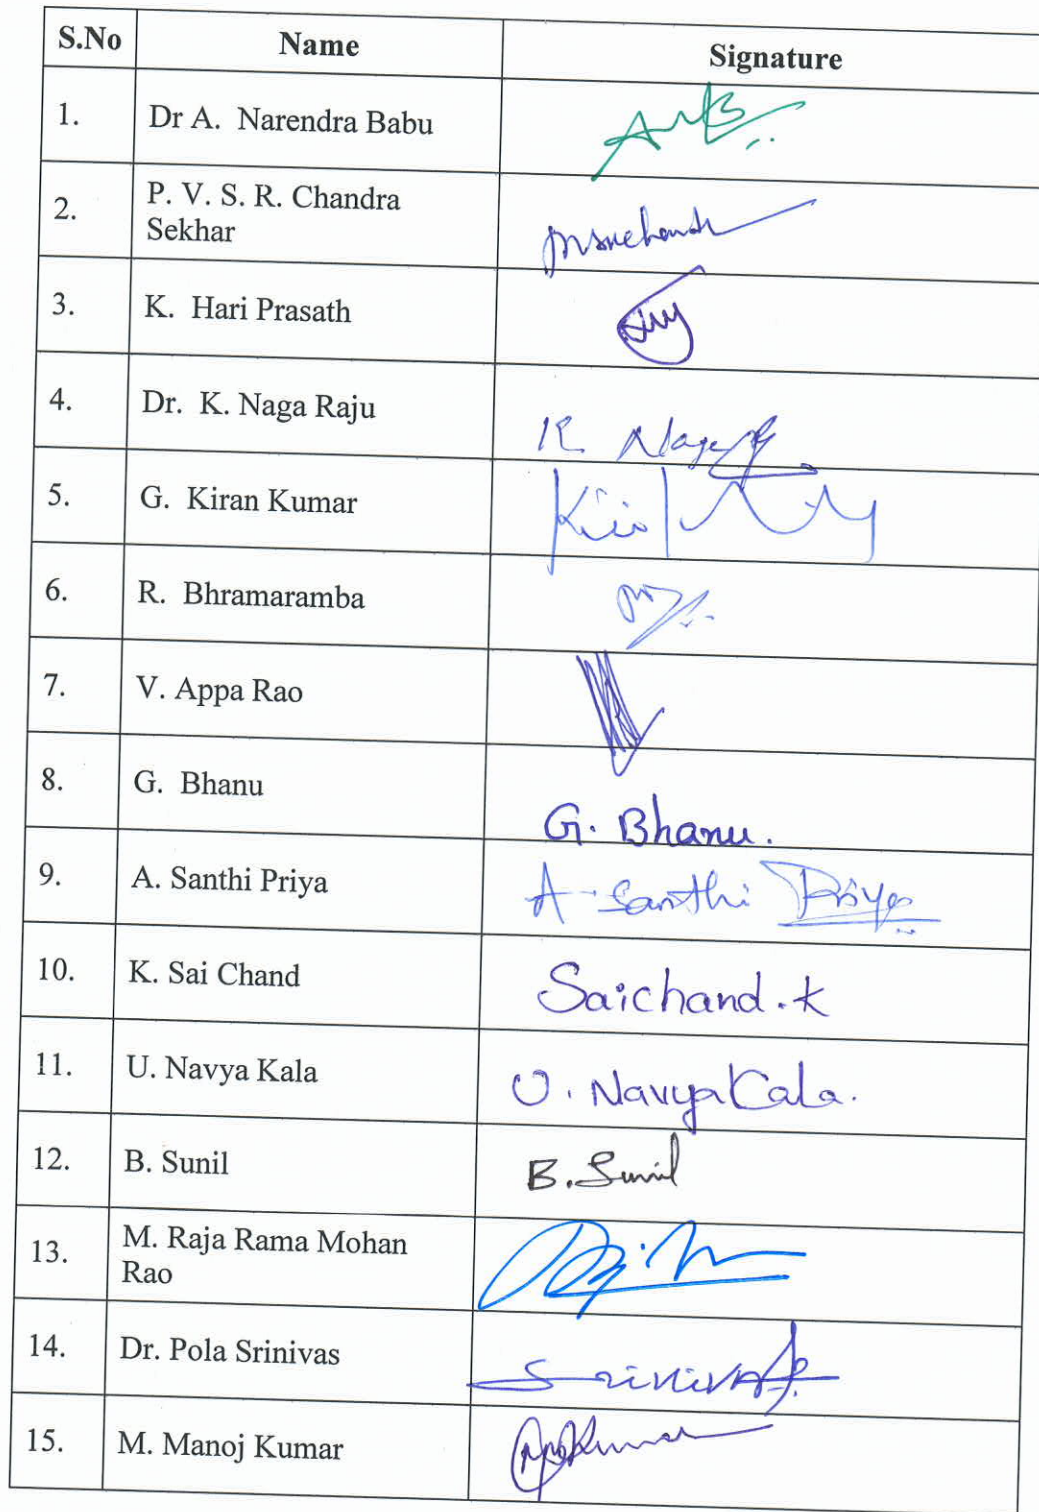 S.No Name Signature
1. Dr A. Narendra Babu
2. P. V. S. R. Chandra
Sekhar
3. K. Hari Prasath
4. Dr. K. Naga Raju K Naga
5. G. Kiran Kumar
6. R. Bhramaramba
7. V. Appa Rao
8. G. Bhanu G. Bhanu.
9. A. Santhi Priya A. Santhi Priya
10. K. Sai Chand Saichand.k
11. U. Navya Kala U. Navya Kala.
12. B. Sunil B. Sunil
13. M. Raja Rama Mohan
Rao
14. Dr. Pola Srinivas Srinivas
15. M. Manoj Kumar